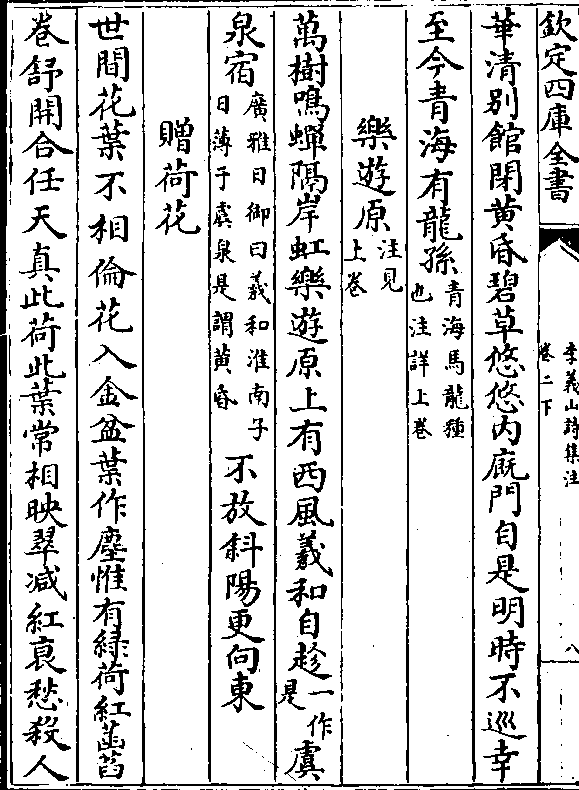 欽定四庫全書
李義山詩集注
卷二下
八
華清別館閉黄昏碧草悠悠内廐門自是明時不巡幸
至今青海有龍孫青海馬龍種
也注詳上卷
樂遊原注見
上卷
萬樹鳴蟬隔岸虹樂遊原上有西風羲和自趁一作
是虞
泉宿廣雅日御曰羲和淮南子
日薄于虞泉是謂黄昏不放斜陽更向東
贈荷花
世間花葉不相倫花入金盆葉作塵惟有緑荷紅菡萏
卷舒開合任天真此荷此葉常相映翠减紅衰愁殺人